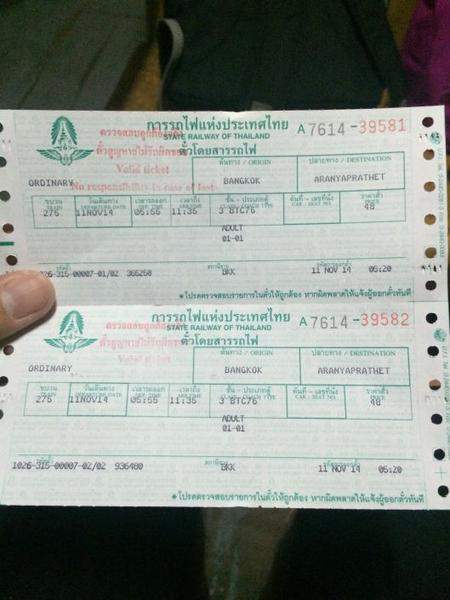 การรถไฟแห่งประเทศไทย A7614-39581
STATE RAILWAY OF THAILAND
ตั๋วโดยสารรถไฟ
Valid ticket
No responsibility in case of lost
ต้นทาง / ORIGIN ปลายทาง / DESTINATION
ORDINARY BANGKOK ARANYAPRATHET
ขบวน วันเดินทาง เวลาออก เวลาถึง ชั้น - ประเภทตู้ คันที่ - เลขที่นั่ง ราคาตั๋ว
275 11NOV14 05:55 11:35 3 BTC76 48
ADULT
01-01
1026-315-00007-01/02 BKK 11 NOV 14 05:20
*โปรดตรวจสอบรายการในตั๋วให้ถูกต้อง หากผิดพลาดให้แจ้งผู้ออกตั๋วทันที
การรถไฟแห่งประเทศไทย A7614-39582
STATE RAILWAY OF THAILAND
ตั๋วโดยสารรถไฟ
Valid ticket
ต้นทาง / ORIGIN ปลายทาง / DESTINATION
ORDINARY BANGKOK ARANYAPRATHET
ขบวน วันเดินทาง เวลาออก เวลาถึง ชั้น - ประเภทตู้ คันที่ - เลขที่นั่ง ราคาตั๋ว
275 11NOV14 05:55 11:35 3 BTC76 48
ADULT
01-01
1026-315-00007-02/02 936480 BKK 11 NOV 14 05:20
*โปรดตรวจสอบรายการในตั๋วให้ถูกต้อง หากผิดพลาดให้แจ้งผู้ออกตั๋วทันที